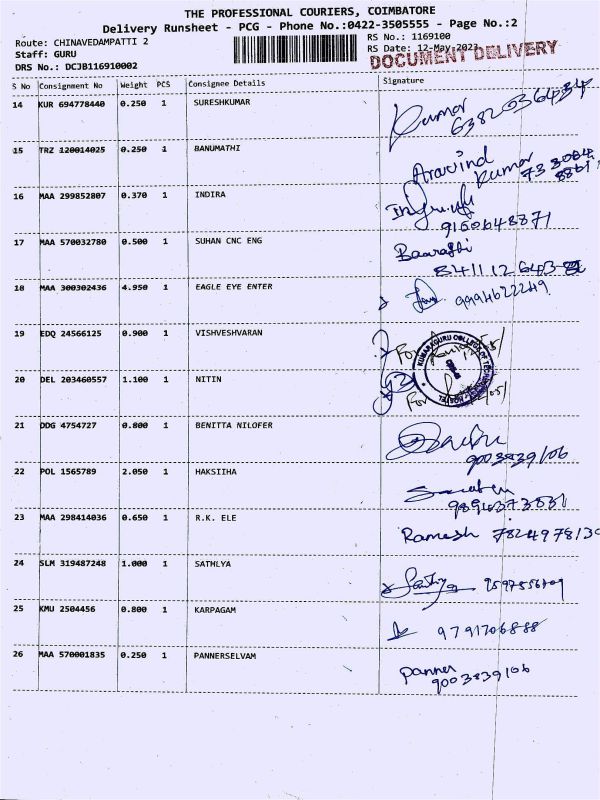 THE PROFESSIONAL COURIERS, COIMBATORE
Delivery Runsheet - PCG - Phone No.:0422-3505555 - Page No.:2
Route: CHINAVEDAMPATTI 2
RS No.: 1169100
Staff: GURU
RS Date: 12-May-2023
DOCUMENT DELIVERY
DRS No.: DCJB116910002
S No Consignment No Weight PCS Consignee Details Signature
14 KUR 694778440 0.250 1 SURESHKUMAR Kumar
6382036434
15 TRZ 120014025 0.250 1 BANUMATHI Aravind
Kumar
16 MAA 299852807 0.370 1 INDIRA
9150648871
17 MAA 570032780 0.500 1 SUHAN CNC ENG
18 MAA 300302436 4.950 1 EAGLE EYE ENTER 9994622249
19 EDQ 24566125 0.900 1 VISHVESHVARAN For
KUMARAGURU COLLEGE OF
HOSTEL
20 DEL 203460557 1.100 1 NITIN For
21 DDG 4754727 0.800 1 BENITTA NILOFER
9003839106
22 POL 1565789 2.050 1 HAKSIIHA
23 MAA 298414036 0.650 1 R.K. ELE Ramesh
24 SLM 319487248 1.000 1 SATHLYA
25 KMU 2504456 0.800 1 KARPAGAM 9791706888
26 MAA 570001835 0.250 1 PANNERSELVAM Panner
9003839106